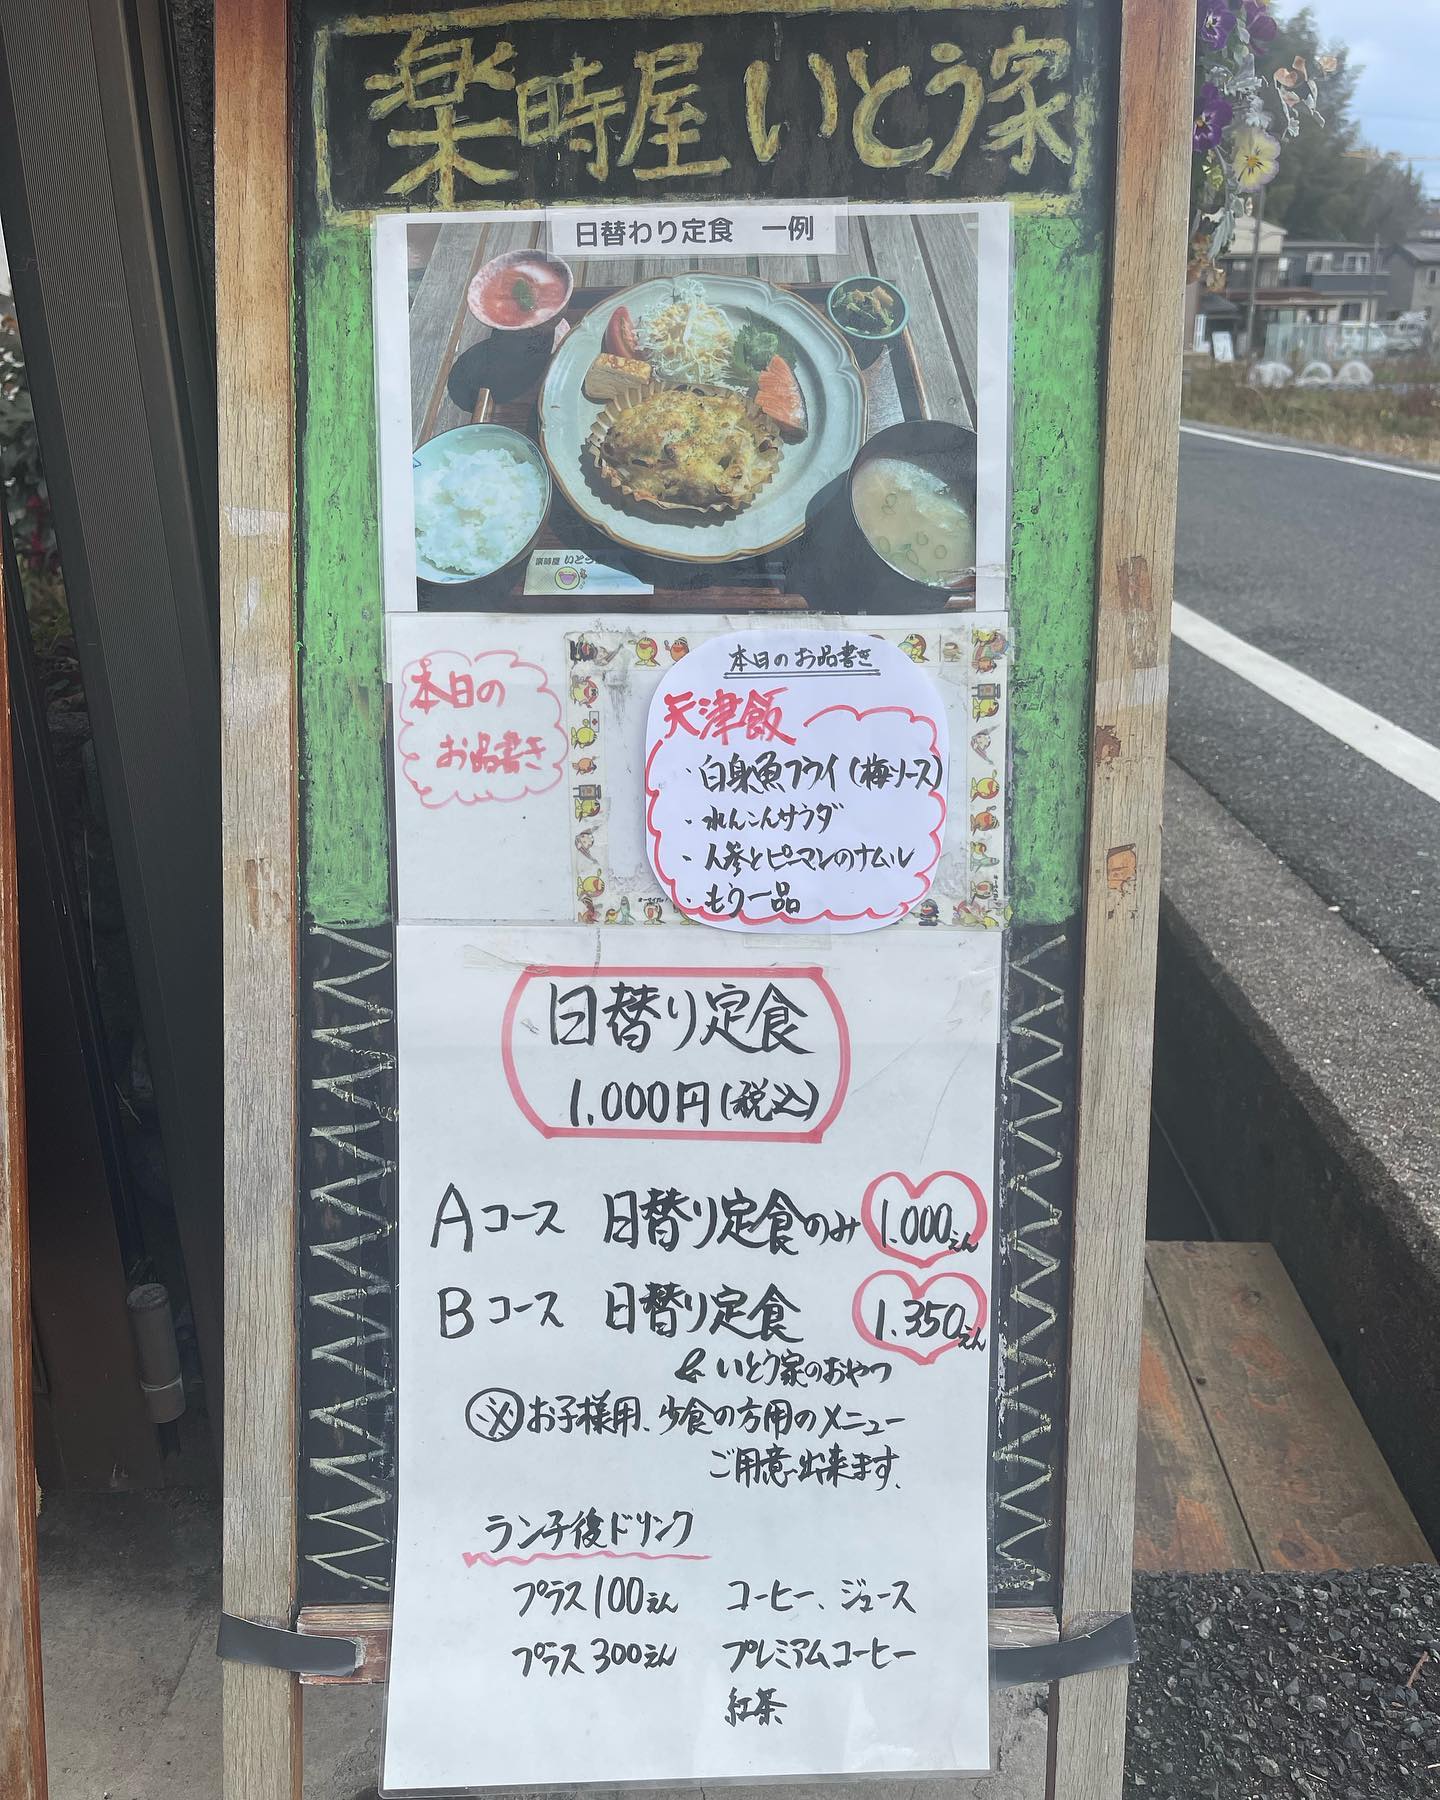 楽時屋 いとう家
日替わり定食 一例
楽時屋 いとう
本日の
お品書き
本日のお品書き
天津飯
・白身魚フライ(梅ソース)
・れんこんサラダ
・人参とピーマンのナムル
・もう一品
日替り定食
1,000円(税込)
Aコース 日替り定食のみ 1.000えん
Bコース 日替り定食 1.350えん
& いとう家のおやつ
※お子様用、少食の方用のメニュー
ご用意出来ます。
ランチ後ドリンク
プラス100えん コーヒー、ジュース
プラス300えん プレミアムコーヒー
紅茶